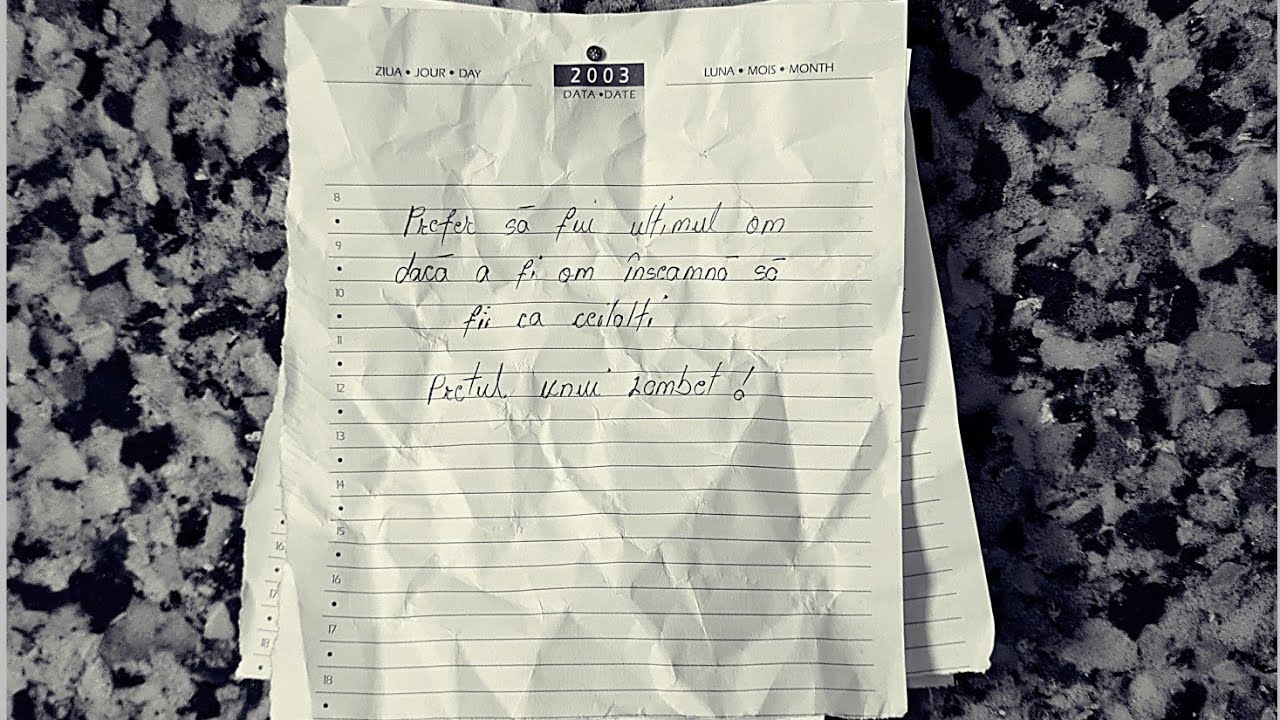 ZIUA • JOUR • DAY
2003
DATA • DATE
LUNA • MOIS • MONTH
8
9
10
11
12
13
14
15
16
17
18
Prefer să fiu ultimul om
dacă a fi om înseamnă să
fii ca ceilalți
Prețul unui zâmbet!
16
17
18